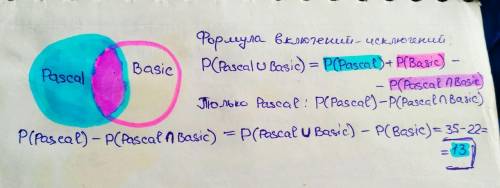 Формула включений-исключений:
Pascal Basic
P(Pascal ∪ Basic) = P(Pascal) + P(Basic) -
- P(Pascal ∩ Basic)
Только Pascal: P(Pascal) - P(Pascal ∩ Basic)
P(Pascal) - P(Pascal ∩ Basic) = P(Pascal ∪ Basic) - P(Basic) = 35-22=
= 13